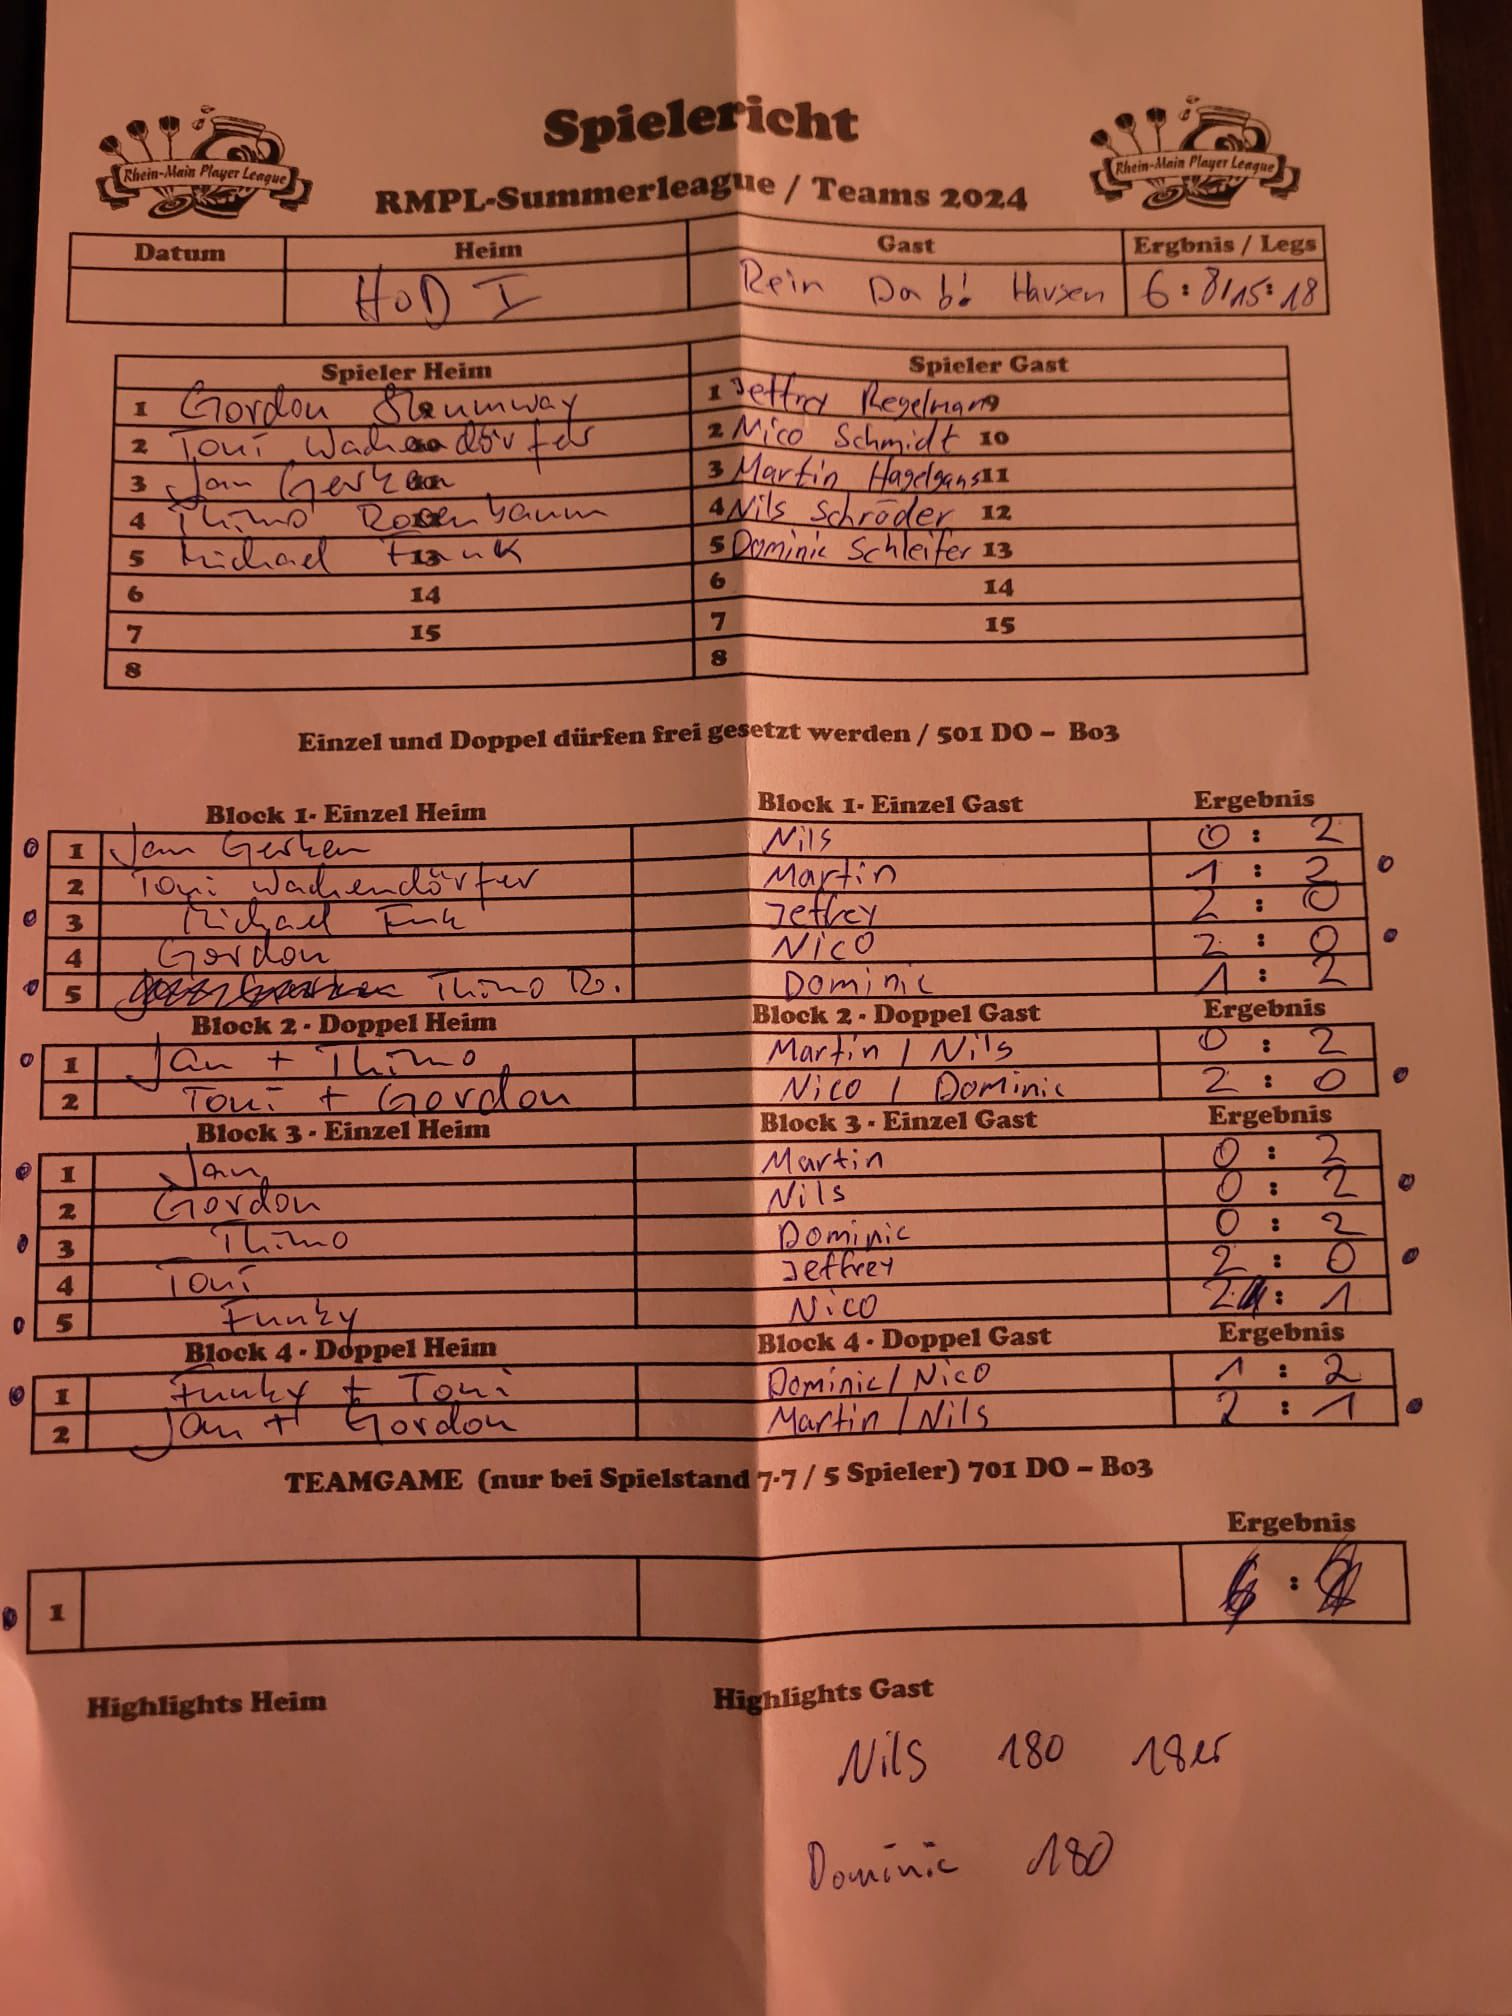 Spielericht
Rhein-Main Player League
Rhein-Main Player League
RMPL-Summerleague / Teams 2024
Datum Heim Gast Ergbnis / Legs
HOD I Rein Da b! Hausen 6 : 8 / 15 : 18
Spieler Heim Spieler Gast
1 Gordon Shumway 1 Jeffrey Regelmann 9
2 Toni Wachendörfer 2 Nico Schmidt 10
3 Jan Gerken 3 Martin Hagelgans 11
4 Thimo Rosenbaum 4 Nils Schröder 12
5 Michael Funk 13 5 Dominic Schleifer 13
6 14 6 14
7 15 7 15
8 8
Einzel und Doppel dürfen frei gesetzt werden / 501 DO – Bo3
Block 1- Einzel Heim Block 1- Einzel Gast Ergebnis
1 Jan Gerken Nils 0 : 2
2 Toni Wachendörfer Martin 1 : 2
3 Michael Funk Jeffrey 2 : 0
4 Gordon Nico 2 : 0
5 Thimo Ro. Dominic 1 : 2
Block 2 - Doppel Heim Block 2 - Doppel Gast Ergebnis
1 Jan + Thimo Martin / Nils 0 : 2
2 Toni + Gordon Nico / Dominic 2 : 0
Block 3 - Einzel Heim Block 3 - Einzel Gast Ergebnis
1 Jan Martin 0 : 2
2 Gordon Nils 0 : 2
3 Thimo Dominic 0 : 2
4 Toni Jeffrey 2 : 0
5 Funky Nico 2 : 1
Block 4 - Doppel Heim Block 4 - Doppel Gast Ergebnis
1 Funky + Toni Dominic / Nico 1 : 2
2 Jan + Gordon Martin / Nils 2 : 1
TEAMGAME (nur bei Spielstand 7-7 / 5 Spieler) 701 DO – Bo3
Ergebnis
1 :
Highlights Heim Highlights Gast
Nils 180 18er
Dominic 180